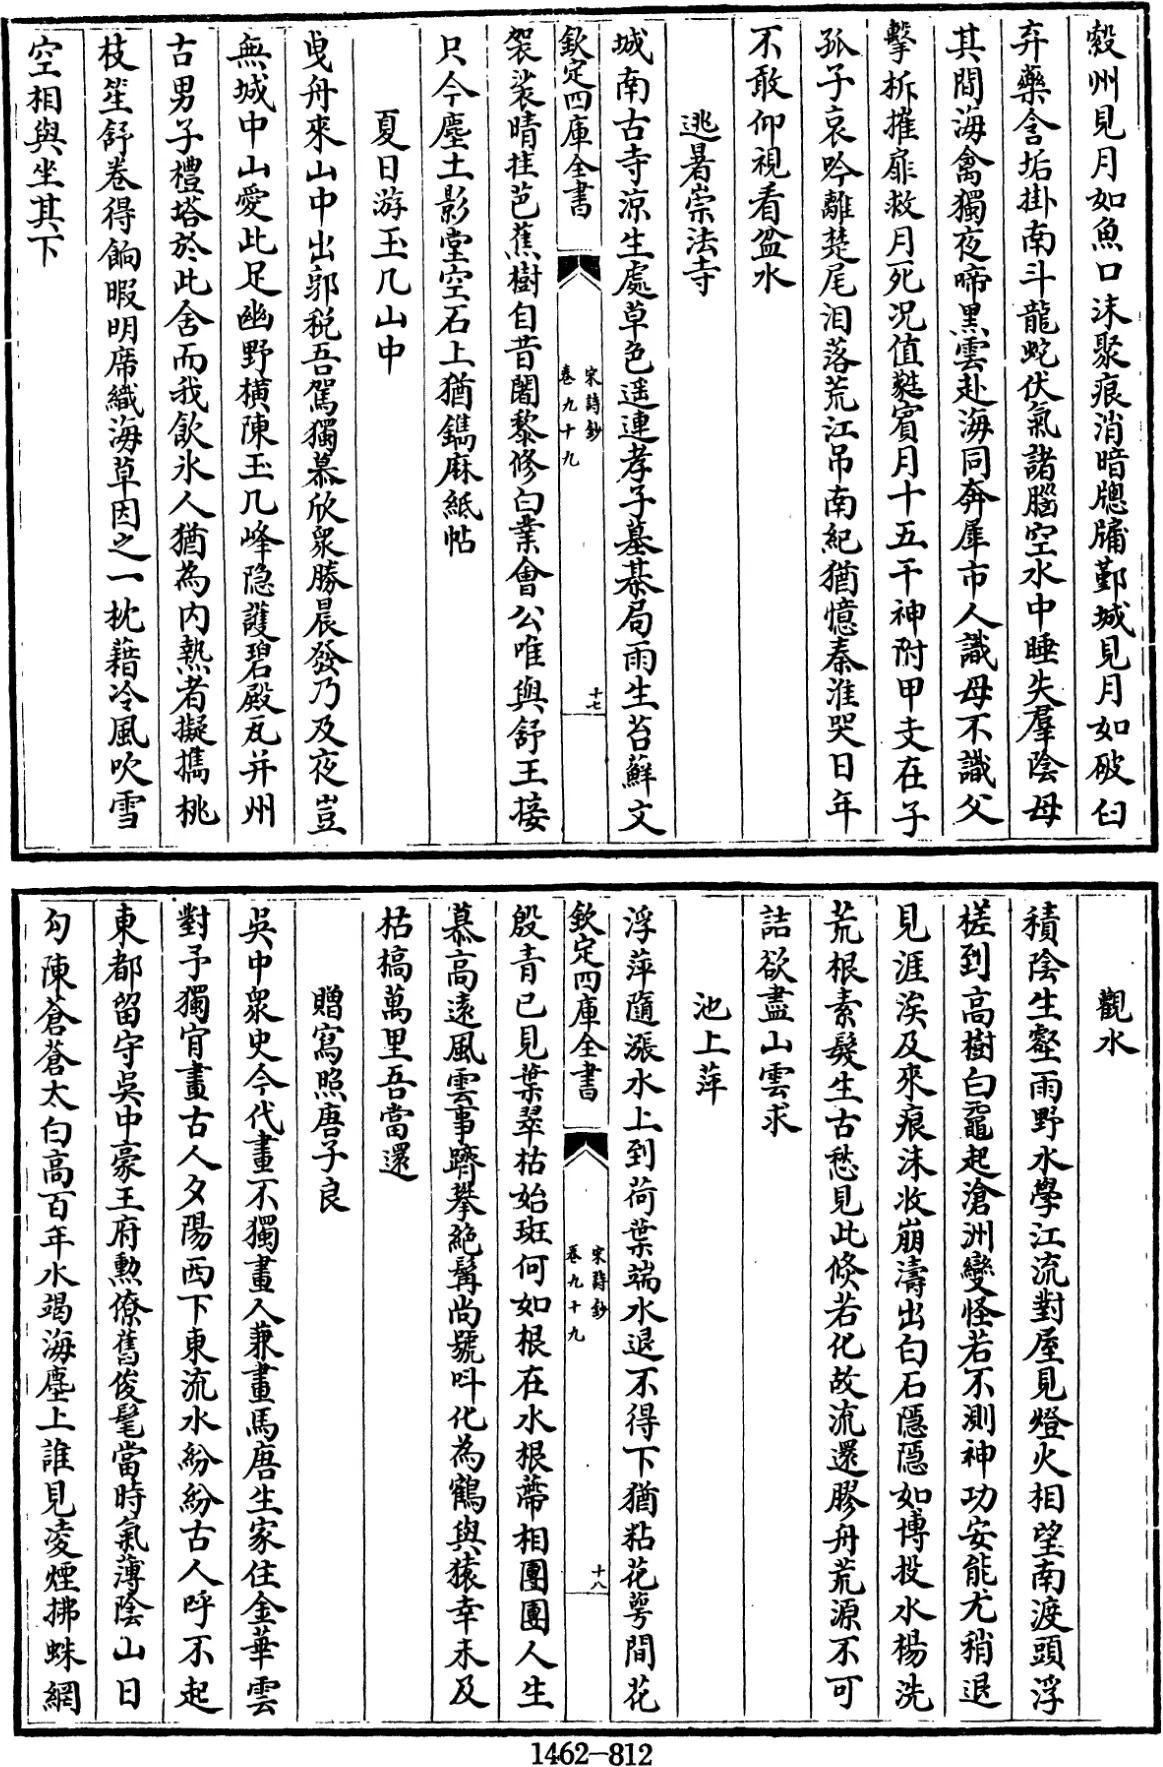 縠州見月如魚口沫聚痕消暗牕牗鄞城見月如破臼
弃藥含垢掛南斗龍蛇伏氣諸腦空水中睡失羣陰母
其間海禽獨夜啼黒雲赴海同奔犀市人識母不識父
擊柝摧扉救月死况值蕤賓月十五干神附甲支在子
孤子哀吟離楚尾泪落荒江吊南紀猶憶秦淮哭日年
不敢仰視看盆水
逃暑崇法寺
城南古寺凉生處草色遥連孝子墓棊局雨生苔蘚文
欽定四庫全書
宋詩鈔
卷九十九
十七
袈裟晴挂芭蕉樹自昔闍黎修白業會公唯與舒王接
只今塵土影堂空石上猶鐫麻紙帖
夏日游玉几山中
曵舟來山中出郭税吾駕獨慕欣衆勝晨發乃及夜豈
無城中山愛此足幽野横陳玉几峰隐護碧殿瓦并州
古男子禮塔於此舍而我飲氷人猶為内熱者擬擕桃
枝笙舒卷得餉暇明席織海草因之一枕藉冷風吹雪
空相與坐其下
觀水
積陰生壑雨野水學江流對屋見燈火相望南渡頭浮
槎到高樹白黿起滄洲變怪若不測神功安能尤稍退
見涯涘及來痕沫收崩濤出白石隱隱如博投水楊洗
荒根素髮生古愁見此倐若化故流還膠舟荒源不可
詰欲盡山雲求
池上萍
浮萍隨漲水上到荷葉端水退不得下猶粘花萼間花
欽定四庫全書
宋詩鈔
卷九十九
十八
殷青已見葉翠枯始斑何如根在水根蔕相團團人生
慕高遠風雲事躋攀絶髯尚號呌化為鶴與猿幸未及
枯槁萬里吾當還
贈寫照唐子良
吳中衆史今代畫不獨畫人兼畫馬唐生家住金華雲
對予獨宵畫古人夕陽西下東流水紛紛古人呼不起
東都留守吳中豪王府勲僚舊俊髦當時氣薄陰山日
勾陳蒼蒼太白高百年水竭海塵上誰見凌煙拂蛛網
1462-812